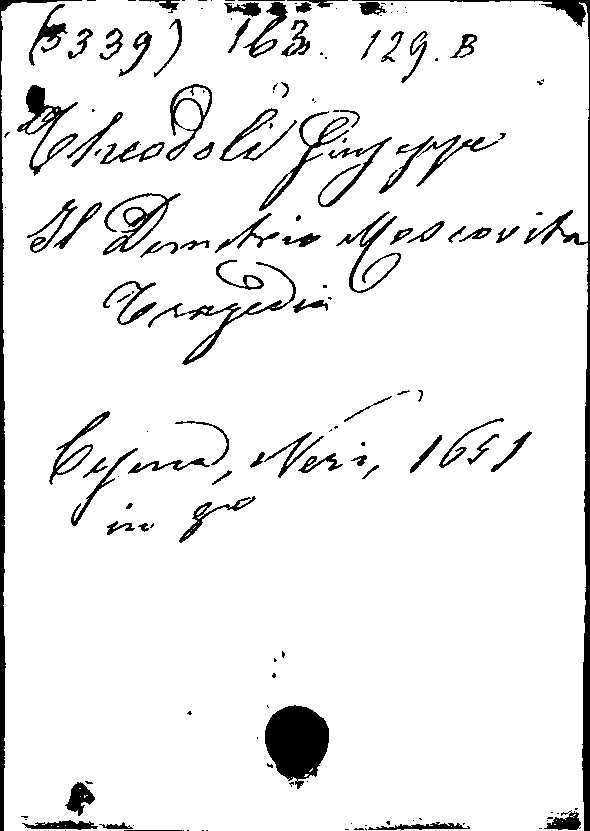 (5339) 163. 129. B
Theodoli Giuseppe
Il Demetrio Moscovita
Tragedia
Cesena, Neri, 1651
in 8vo